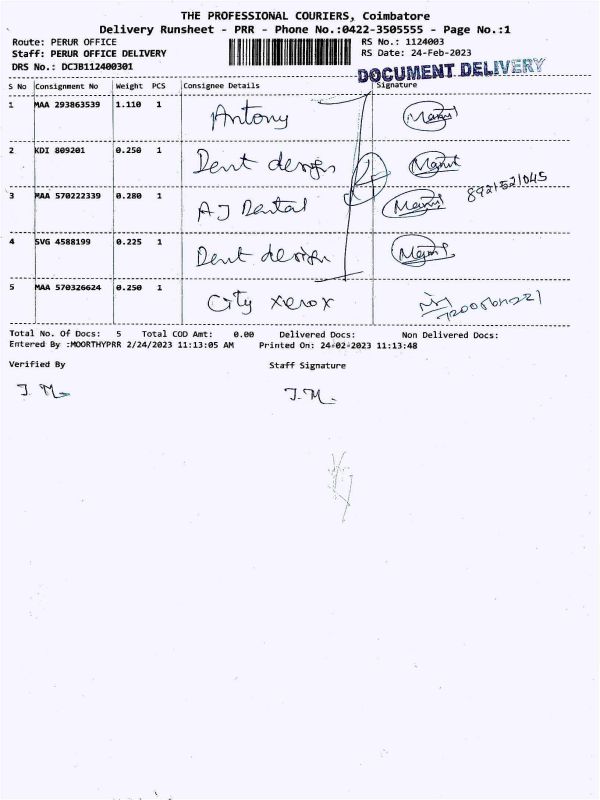 THE PROFESSIONAL COURIERS, Coimbatore
Delivery Runsheet - PRR - Phone No.:0422-3505555 - Page No.:1
Route: PERUR OFFICE
RS No.: 1124003
Staff: PERUR OFFICE DELIVERY
RS Date: 24-Feb-2023
DRS No.: DCJB112400301
DOCUMENT DELIVERY
S No Consignment No Weight PCS Consignee Details Signature
1 MAA 293863539 1.110 1 Antony
2 KDI 809201 0.250 1 Dent design
3 MAA 570222339 0.280 1 AJ Dental 8921521045
4 SVG 4588199 0.225 1 Dent design
5 MAA 570326624 0.250 1 City xerox
Total No. Of Docs: 5 Total COD Amt: 0.00 Delivered Docs: Non Delivered Docs:
Entered By :MOORTHYPRR 2/24/2023 11:13:05 AM Printed On: 24-02-2023 11:13:48
Verified By Staff Signature
J. M. J.M.